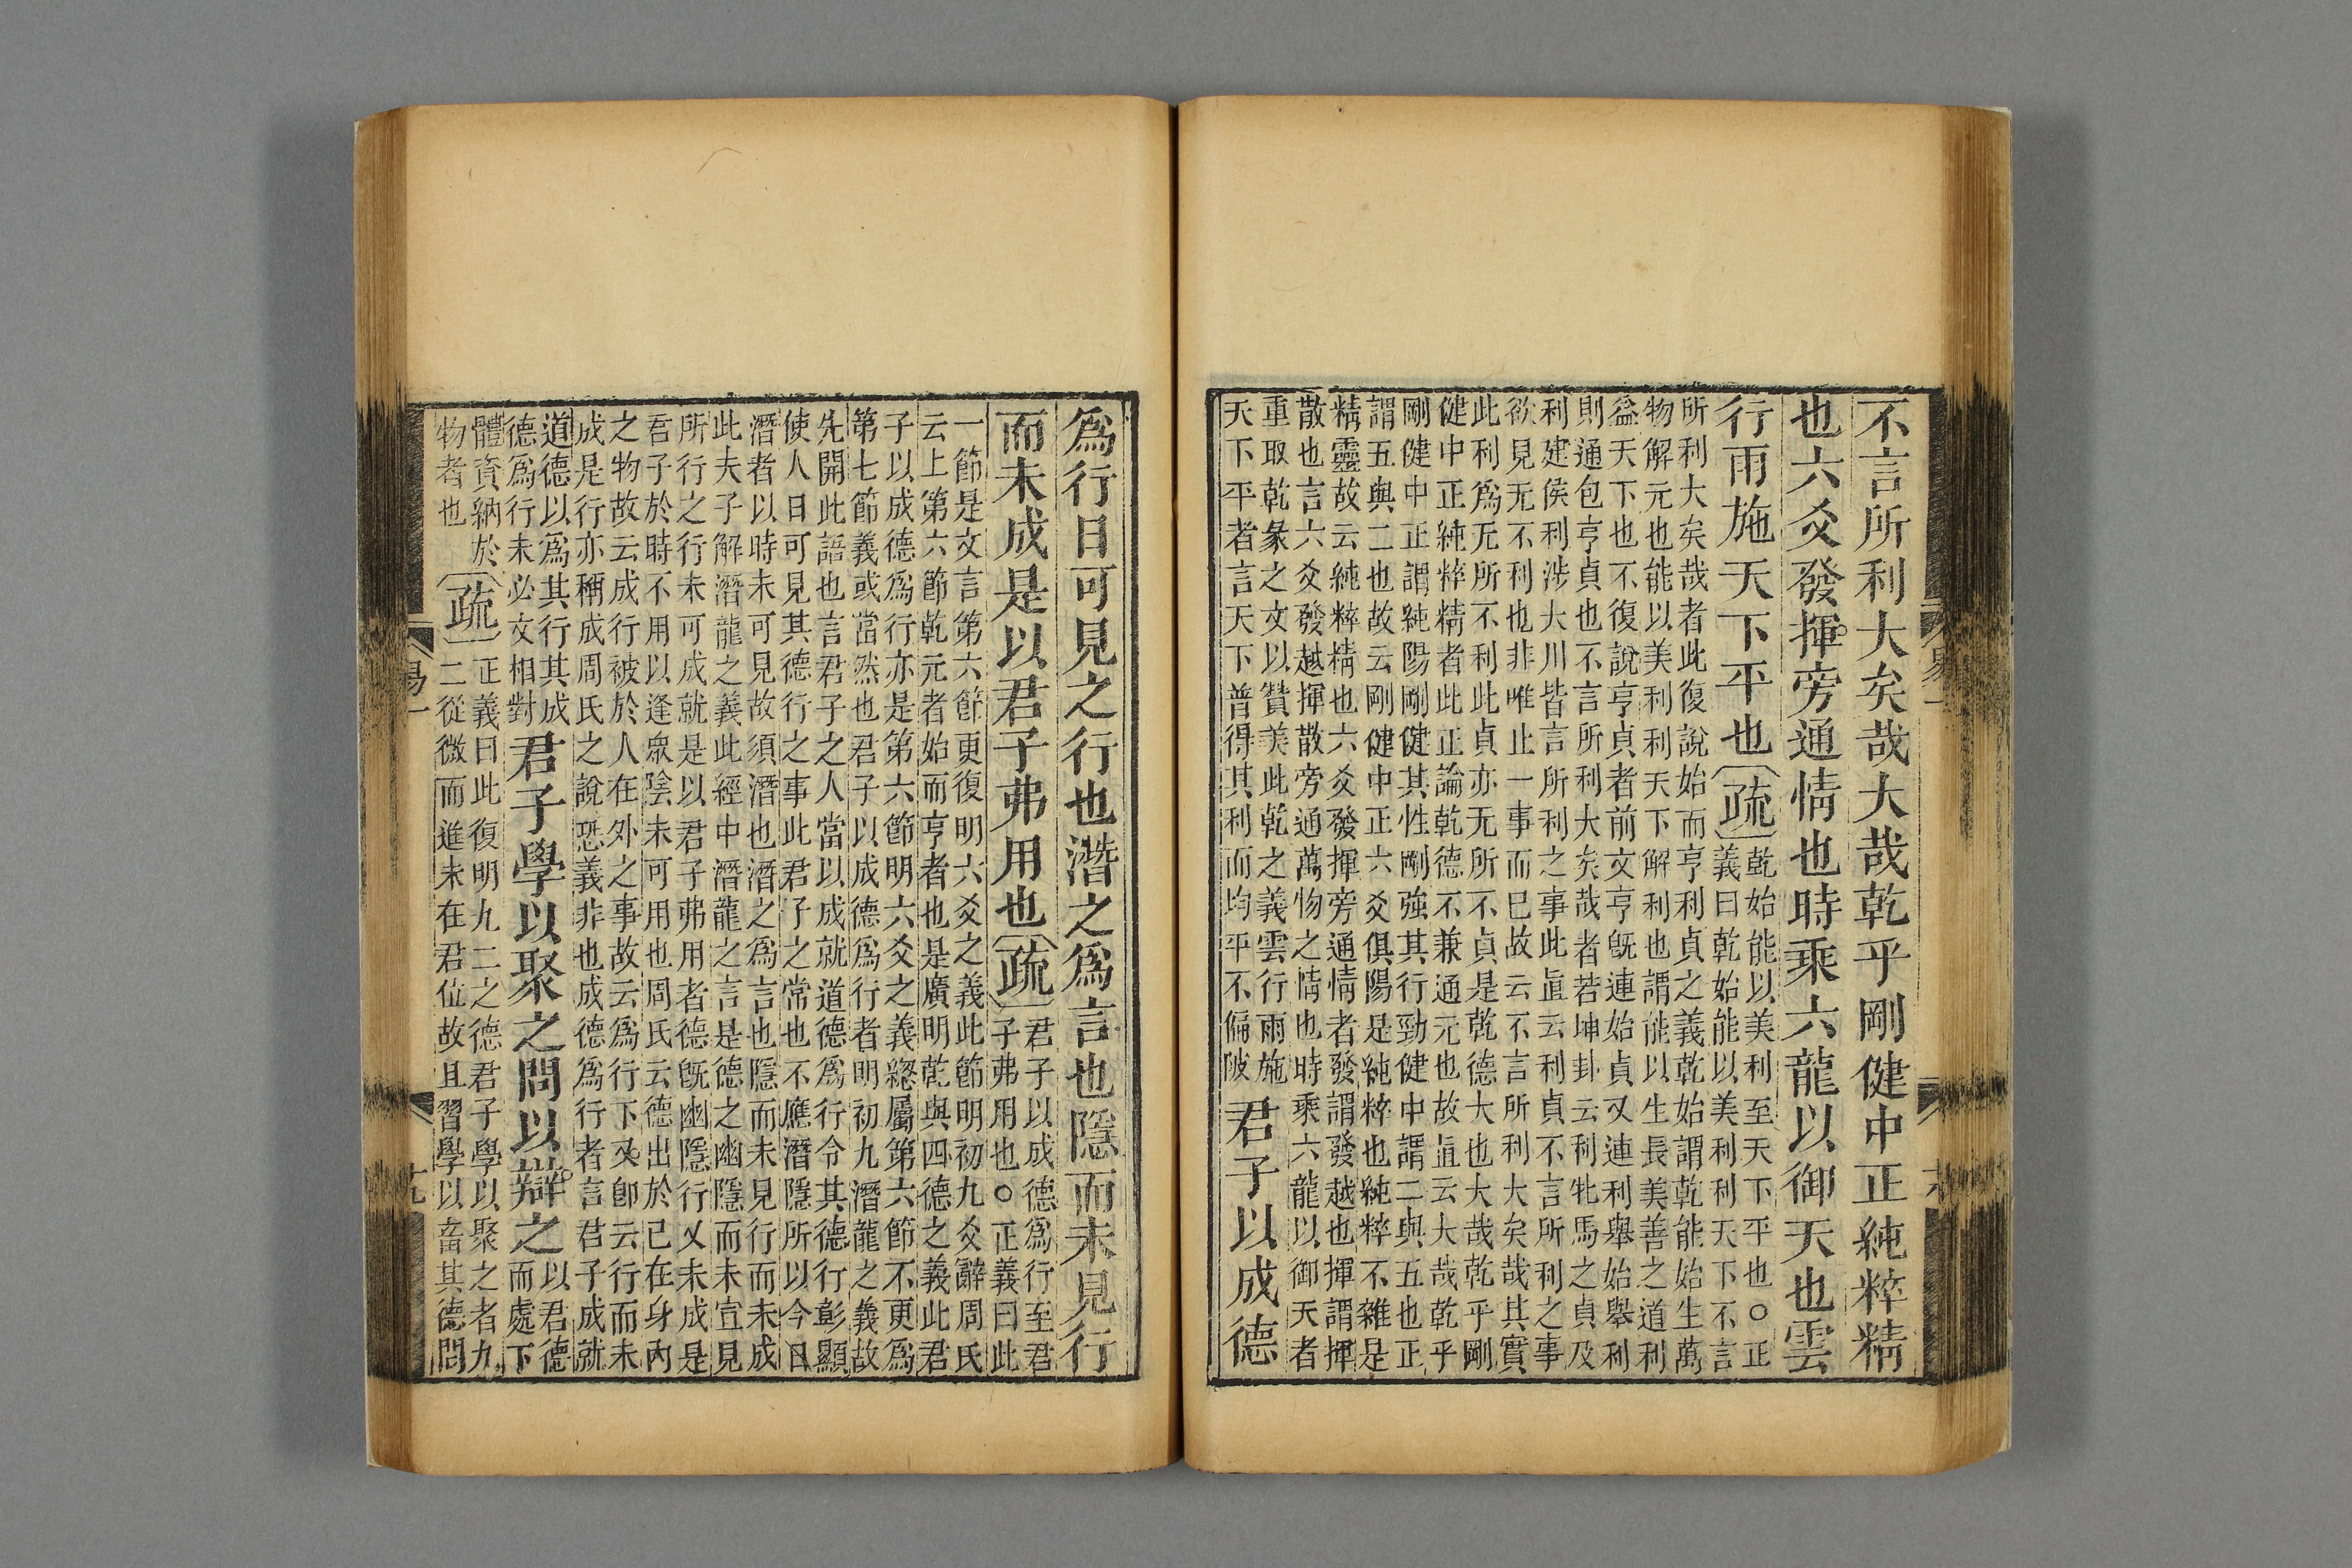 不言所利大矣哉大哉乾乎剛健中正純粹精
也六爻發揮旁通情也時乘六龍以御天也雲
行雨施天下平也〔疏〕
乾始能以美利至天下平也○正
義曰乾始能以美利利天下不言
所利大矣哉者此復說始而亨利貞之義乾始謂乾能始生萬
物解元也能以美利利天下解利也謂能以生長美善之道利
益天下也不復說亨貞者前文亨旣連始貞又連利舉始舉利
則通包亨貞也不言所利大矣哉者若坤卦云利牝馬之貞及
利建侯利涉大川皆言所利之事此直云利貞不言所利之事
欲見无不利也非唯止一事而已故云不言所利大矣哉其實
此利爲无所不利此貞亦无所不貞是乾德大也大哉乾乎剛
健中正純粹精者此正論乾德不兼通元也故直云大哉乾乎
剛健中正謂純陽剛健其性剛強其行勁健中謂二與五也正
謂五與二也故云剛健中正六爻俱陽是純粹也純粹不雜是
精靈故云純粹精也六爻發揮旁通情者發謂發越也揮謂揮
散也言六爻發越揮散旁通萬物之情也時乘六龍以御天者
重取乾彖之文以贊美此乾之義雲行雨施
天下平者言天下普得其利而均平不偏陂
君子以成德
爲行日可見之行也潛之爲言也隱而未見行
而未成是以君子弗用也〔疏〕
君子以成德爲行至君
子弗用也○正義曰此
一節是文言第六節更復明六爻之義此節明初九爻辭周氏
云上第六節乾元者始而亨者也是廣明乾與四德之義此君
子以成德爲行亦是第六節明六爻之義緫屬第六節不更爲
第七節義或當然也君子以成德爲行者明初九潛龍之義故
先開此語也言君子之人當以成就道德爲行令其德行彰顯
使人日可見其德行之事此君子之常也不應潛隱所以今日
潛者以時未可見故須潛也潛之爲言也隱而未見行而未成
此夫子解潛龍之義此經中潛龍之言是德之幽隱而未宣見
所行之行未可成就是以君子弗用者德旣幽隱行又未成是
君子於時不用以逢衆陰未可用也周氏云德出於已在身內
之物故云成行被於人在外之事故云爲行下又卽云行而未
成是行亦稱成周氏之說恐義非也成德爲行者言君子成就
道德以爲其行其成
德爲行未必文相對
君子學以聚之問以辯之
以君德
而處下
體資納於
物者也
〔疏〕
正義曰此復明九二之德君子學以聚之者九
二從微而進未在君位故且習學以畜其德問